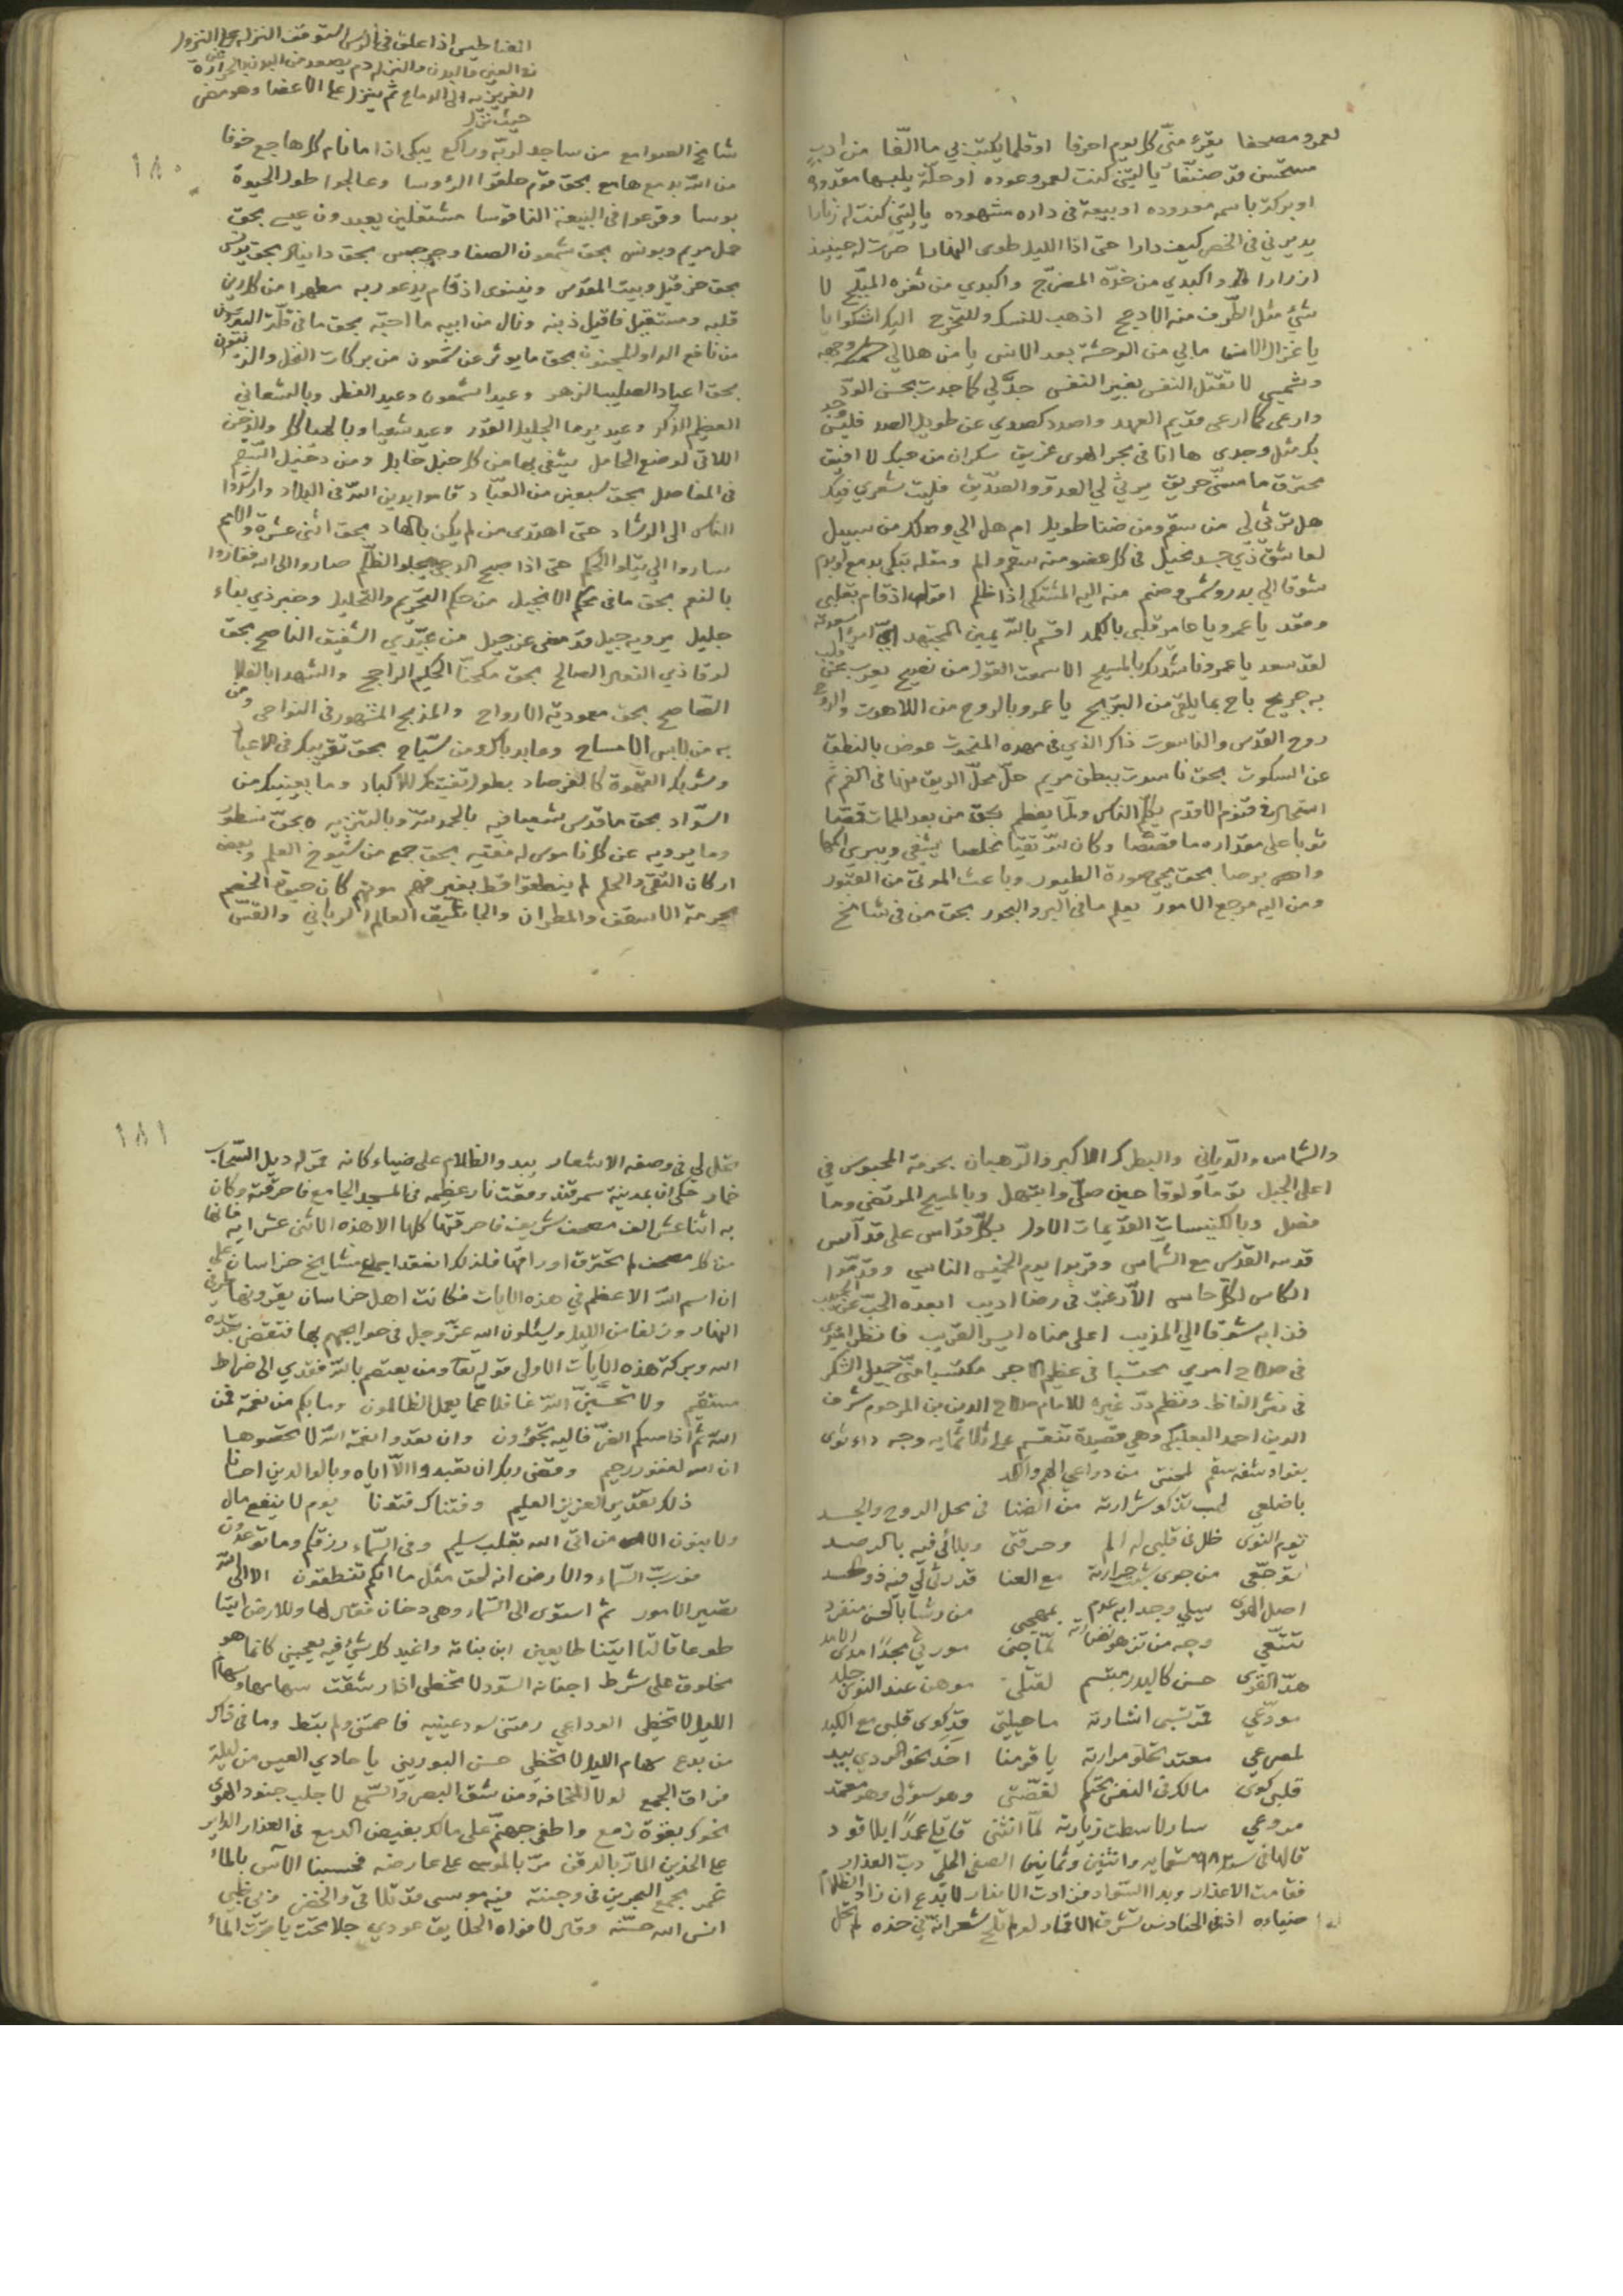 لعمرو مصحفا يقرء منّي كل يوم احرفا او قلما يكتب بي ما الّفا من ادب
مستحسن قد صنّفا يا ليتني كنت لعمرو عوده او حلّة يلبسها مقدوده
او بركة باسمه معدوده او بيعة في داره مشهوده يا ليتني كنت له زنارا
يديرني في الخصر كيف دارا حتى اذا الليل طوى النهارا صرت له حينيذ
ازارا واكبدي من خدّه المضرّج واكبدي من ثغره المفلّج لا
شيء مثل الطّرف منه الادعج اذهب للنسك وللتحرّج اليك اشكو يا
يا غزال الانس مابي من الوحشة بعد الانس يا من هلالي وجهه
وشمسي لا تقتل النفس بغير النفس جد لي كما جدت بحسن الودّ
وارعى كما ارعى قديم العهد واصدد كصدي عن طويل الصد فليس وجد
بك مثل وجدي ها انا في بحر الهوى غريق سكران من حبك لا افيق
محترق ما مسّني حريق يرثي لي العدو والصدّيق فليت شعري فيك
هل ترثي لي من سقم ومن ضنا طويل ام هل الي وصلك من سبيل
لعاشق ذي جسد نحيل في كل عضو منه سقم والم ومقلة تبكي بدمع وبدم
شوقا الي بدر وشمس وصنم منه اليه المشتكي اذا ظلم اقول اذ قام بقلبي
وقعد يا عمرو يا عامر قلبي بالكمد اقسم بالله يمين المجتهد انّ امرءا اسعدته
لقد سعد يا عمرو ناشدتك بالمسيح الا سمعت القول من فصيح يعرب عن قلب
به جريح باح بما يلقى من التبريح يا عمرو بالروح من اللاهوت والروح
روح القدس والناسوت ذاك الذي في مهده المنحوت عوض بالنطق
عن السكوت بحق ناسوت ببطن مريم حلّ محلّ الريق منها في الفم ثم
استحال في قنوم الاقدم يكلّم الناس ولمّا يفطم بحق من بعد الممات قمّصا
ثوبا على مقداره ما قصّصا وكان لله تقيّا مخلصا يشفي ويبري اكمها
وابرصا بحق محيي صورة الطيور وباعث الموتي من القبور
ومن اليه مرجع الامور يعلم ما في البر والبحور بحق من في شامخ
المغناطيس اذا علق في الراس استوقف النزلة على النزول
الغريزيه الي الدماغ ثم ينزل على الاعضا وهو مضى
حيث نزل
١٨٠
شامخ الصوامع من ساجد لربّه وراكع يبكي اذا ما نام كل هاجع خوفا
من الله بدمع هامع بحق قوم حلقوا الرؤوسا وعالجوا طول الحيوة
بوسا وقرعوا في البيعة الناقوسا مشتغلين يعبدون عيسى بحق
حمل مريم وبولس بحق شمعون الصفا وجرجس بحق دانيال بحق يونس
بحق حزقيل وبيت المقدس ونينوى اذ قام يدعو ربه مطهرا من كل رين
قلبه ومستقيل فاقيل ذنبه ونال من ابيه ما احبّه بحق ما في قلّة
من نافع الداء للمجنون بحق ما يوثر عن شمعون من بركات النخل والزيتون
بحق اعياد الصليب الزهر وعيد اشمعون وعيد الفطر وبالشعانين
العظيم الذكر وعيد يرما الجليل القدر وعيد شعيا وبالهياكل والدخن
اللاتي لوضع الحامل يشفي بها من كل خبل خابل ومن دخيل السّقم
في المفاصل بحق سبعين من العبّاد قاموا بدين الله في البلاد وارشدوا
الناس الى الرشاد حتى اهتدى من لم يكن بالهاد بحق اثني عشرة والامم
ساروا الي يتلوا الحكم حتى اذا صبح الدجى يجلو الظلم صاروا الى الله ففازوا
بالنعم بحق ما في محكم الانجيل من حكم التحريم والتحليل وخبر ذي نباء
جليل يرويه جيل قد مضى عن جيل من عبّدي الشفيق الناصح بحق
لوقا ذي الفعل الصالح بحق الحكيم الراجح والشهدا بالفلا
الصّحاصح بحق معموديّة الارواح والمذبح المشهور في النواحي ومن
به من لابس الامساح وعابد باك ومن سيّاح بحق تقريبك في الاعياد
وشربك القهوة كالفرصاد بطول تفتيتك للاكباد وما بعينيك من
السّواد بحق ما قدّس شعيا فيه بالحمد لله وبالتنزيه بحق نسطور
وما يرويه عن كل ناموس له فقيه بحق جمع من شيوخ العلم وبعض
اركان التقى والحلم لم ينطقوا قط بغير فهم موتهم كان حيوة الخصم
بحرمة الاسقف والمطران والجاثليق العالم الرباني والقسّ
والشماس والدّيّاني والبطرك الاكبر والرّهبان بحرمة المحبوس في
اعلى الجبل ولوقا حين صلّى وابتهل وبالمسيح المرتضى وما
فضل وبالكنيسات القديمات الاول بكلّ قدّاس على قدّاس
قدسه القدس مع الشّماس وقربوا يوم الخميس الناسي وقدّموا
الكاس لكل حاس الّا رغبت في رضا اديب ابعده الحبّ عن الحبيب
فذابه شوقا الي المذيب اعلى مناه ايسر التقريب فانظر اميري
في صلاح امري محتسبا في عظيم الاجر مكتسبا منّي جميل الشكر
في نثر الفاظ ونظم درّ غيره للامام صلاح الدين بن المرحوم شرف
الدين احمد البعلبكي وهي قصيدة تنقسم على ثلاثمايه وجه داء ثوى
بفواد شفه سقم لمحنتي من دواعي الهم والكمد
باضلعي لهب تذكو شرارته من الضنا في محل الروح والجسد
يوم النوى ظل في قلبي له الم وحرقتي وبلائي فيه بالرصد
توجّعي من جوى شبّ حرارته مع العنا قد رثى لي فيه ذو الحسد
اصل الهوى ملبسي وجدا به عدم بمهجتي من رشا بالحسن منفرد
تتبّعي وجه من تزهو نضارته لمّا جنى مورثي مجدا مدى الامد
هدّ القوى حسن كالبدر مبتسم لفتنتي موهن عند النوى جلدي
مودّعي قمر تسبي اشارته ما حيلتي قد كوى قلبي مع الكبد
لمصرعي معتد تحلو مرارته يا قومنا اخذ نحو الردي بيد
قلبي كوى مالك في النفس محتكم لقصّتي وهو سؤلي وهو معتمد
مروعي سار لا سطت زيارته لمّا انثنى قاتلي عمدا بلا قود
قالها في سنة ٦٨٢ ستمايه واثنين وثمانين الصفي الحلّي دبّ العذار
فقامت الاعذار وبدا السّواد فزادت الابصار لا بدع ان زاد الظلام
ضياءه اذ في الحنادس تشرق الاقمار لو لم تلح شعراته في خده لم تحل
١٨١
تحل لي في وصفه الاشعار يبدو الظلام على ضياء كانه قمر له ذيل السّحاب
خمار حكي ان بمدينة سمرقند وقعت نار عظيمه في المسجد الجامع فاحرقته وكان
به اثنا عشر الف مصحف شريف فاحرقتها كلها الا هذه الاثني عشر ايه فانها
من كل مصحف لم تحترق اوراقها فلذلك انعقد اجماع مشايخ خراسان على
ان اسم الله الاعظم في هذه الايات فكانت اهل خراسان يقرونها طرفي
النهار وزلفا من الليل ويسئلون الله عزّ وجل في حوايجهم بها فتقضى
الله وبركة هذه الايات الاولى قوله تعا ومن يعتصم بالله فقد هدي الى صراط
مستقيم ولا تحسبنّ الله غافلا عمّا يعمل الظالمون وما بكم من نعمة فمن
الله ثم اذا مسكم الضرّ فاليه تجئرون وان تعدوا نعمة الله لا تحصوها
ان الله لغفور رحيم وقضى ربك ان لا تعبدوا الّا اياه وبالوالدين احسانا
ذلك تقدير العزيز العليم وفتناك فتونا يوم لا ينفع مال
ولا بنون الا من اتى الله بقلب سليم وفي السّماء رزقكم وما توعدون
فورب السّماء والارض انه لحق مثل ما انكم تنطقون الا الى الله
تصير الامور ثم استوى الى السّماء وهي دخان فقال لها وللارض ائتيا
طوعا قالتا اتينا طايعين ابن بناته واغيد كل شيء فيه يعجبني كانما هو
مخلوق على شرط اجفانه السّود لا تخطي اذا رشقت سهامها وسهام
الليل لا تخطي الوداعي رمتني سود عينيه فاصمتني ولم تبط وما في ذاك
من بدع سهام الليل لا تخطي حسن البوريني يا حادي العيس من ليلة
فراق الجمع لولا المخافه ومن شق البصر والسّمع لا جلب جنود الهوى
نحوك بغزة زمع واطفي جهنّم على مالك بفيض الدمع في العذار الداير
على الخدين المارّ بالدقن مرّ بالموسى على عارضه فحسبنا الآس بالماء
غمر مجمع البحرين في وجنته فيه موسى قد تلاقى والخضر
انس الله حسّنه وقال لافواه الخلايق عوذي جلا تحت ياقوت الما